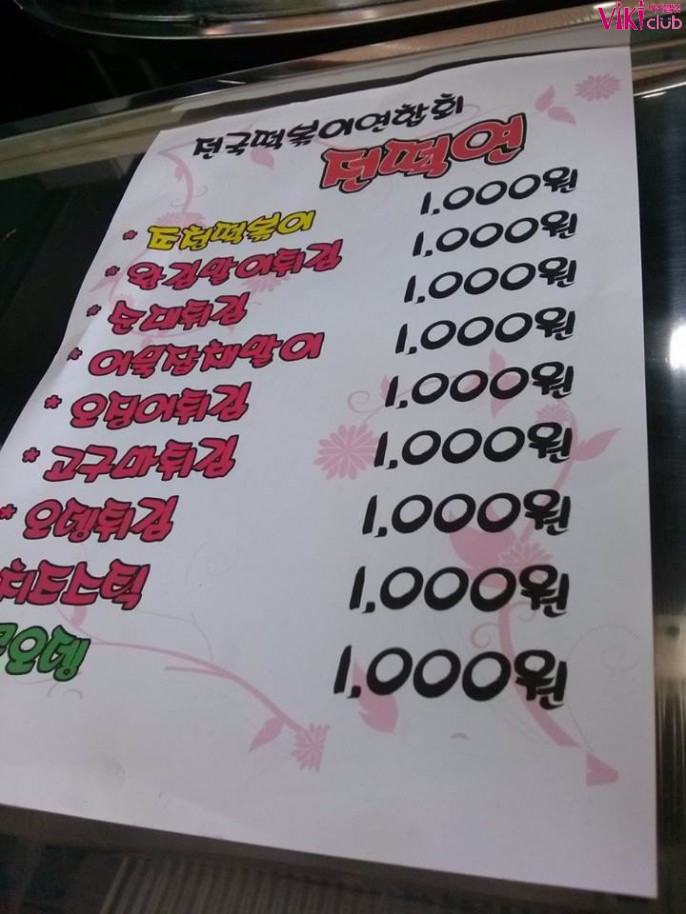 Viki club
전국떡볶이연합회
전떡연
* 떡볶이 1,000원
* 왕김말이튀김 1,000원
* 순대튀김 1,000원
* 어묵잡채말이 1,000원
* 오징어튀김 1,000원
* 고구마튀김 1,000원
* 오뎅튀김 1,000원
치즈스틱 1,000원
오뎅 1,000원